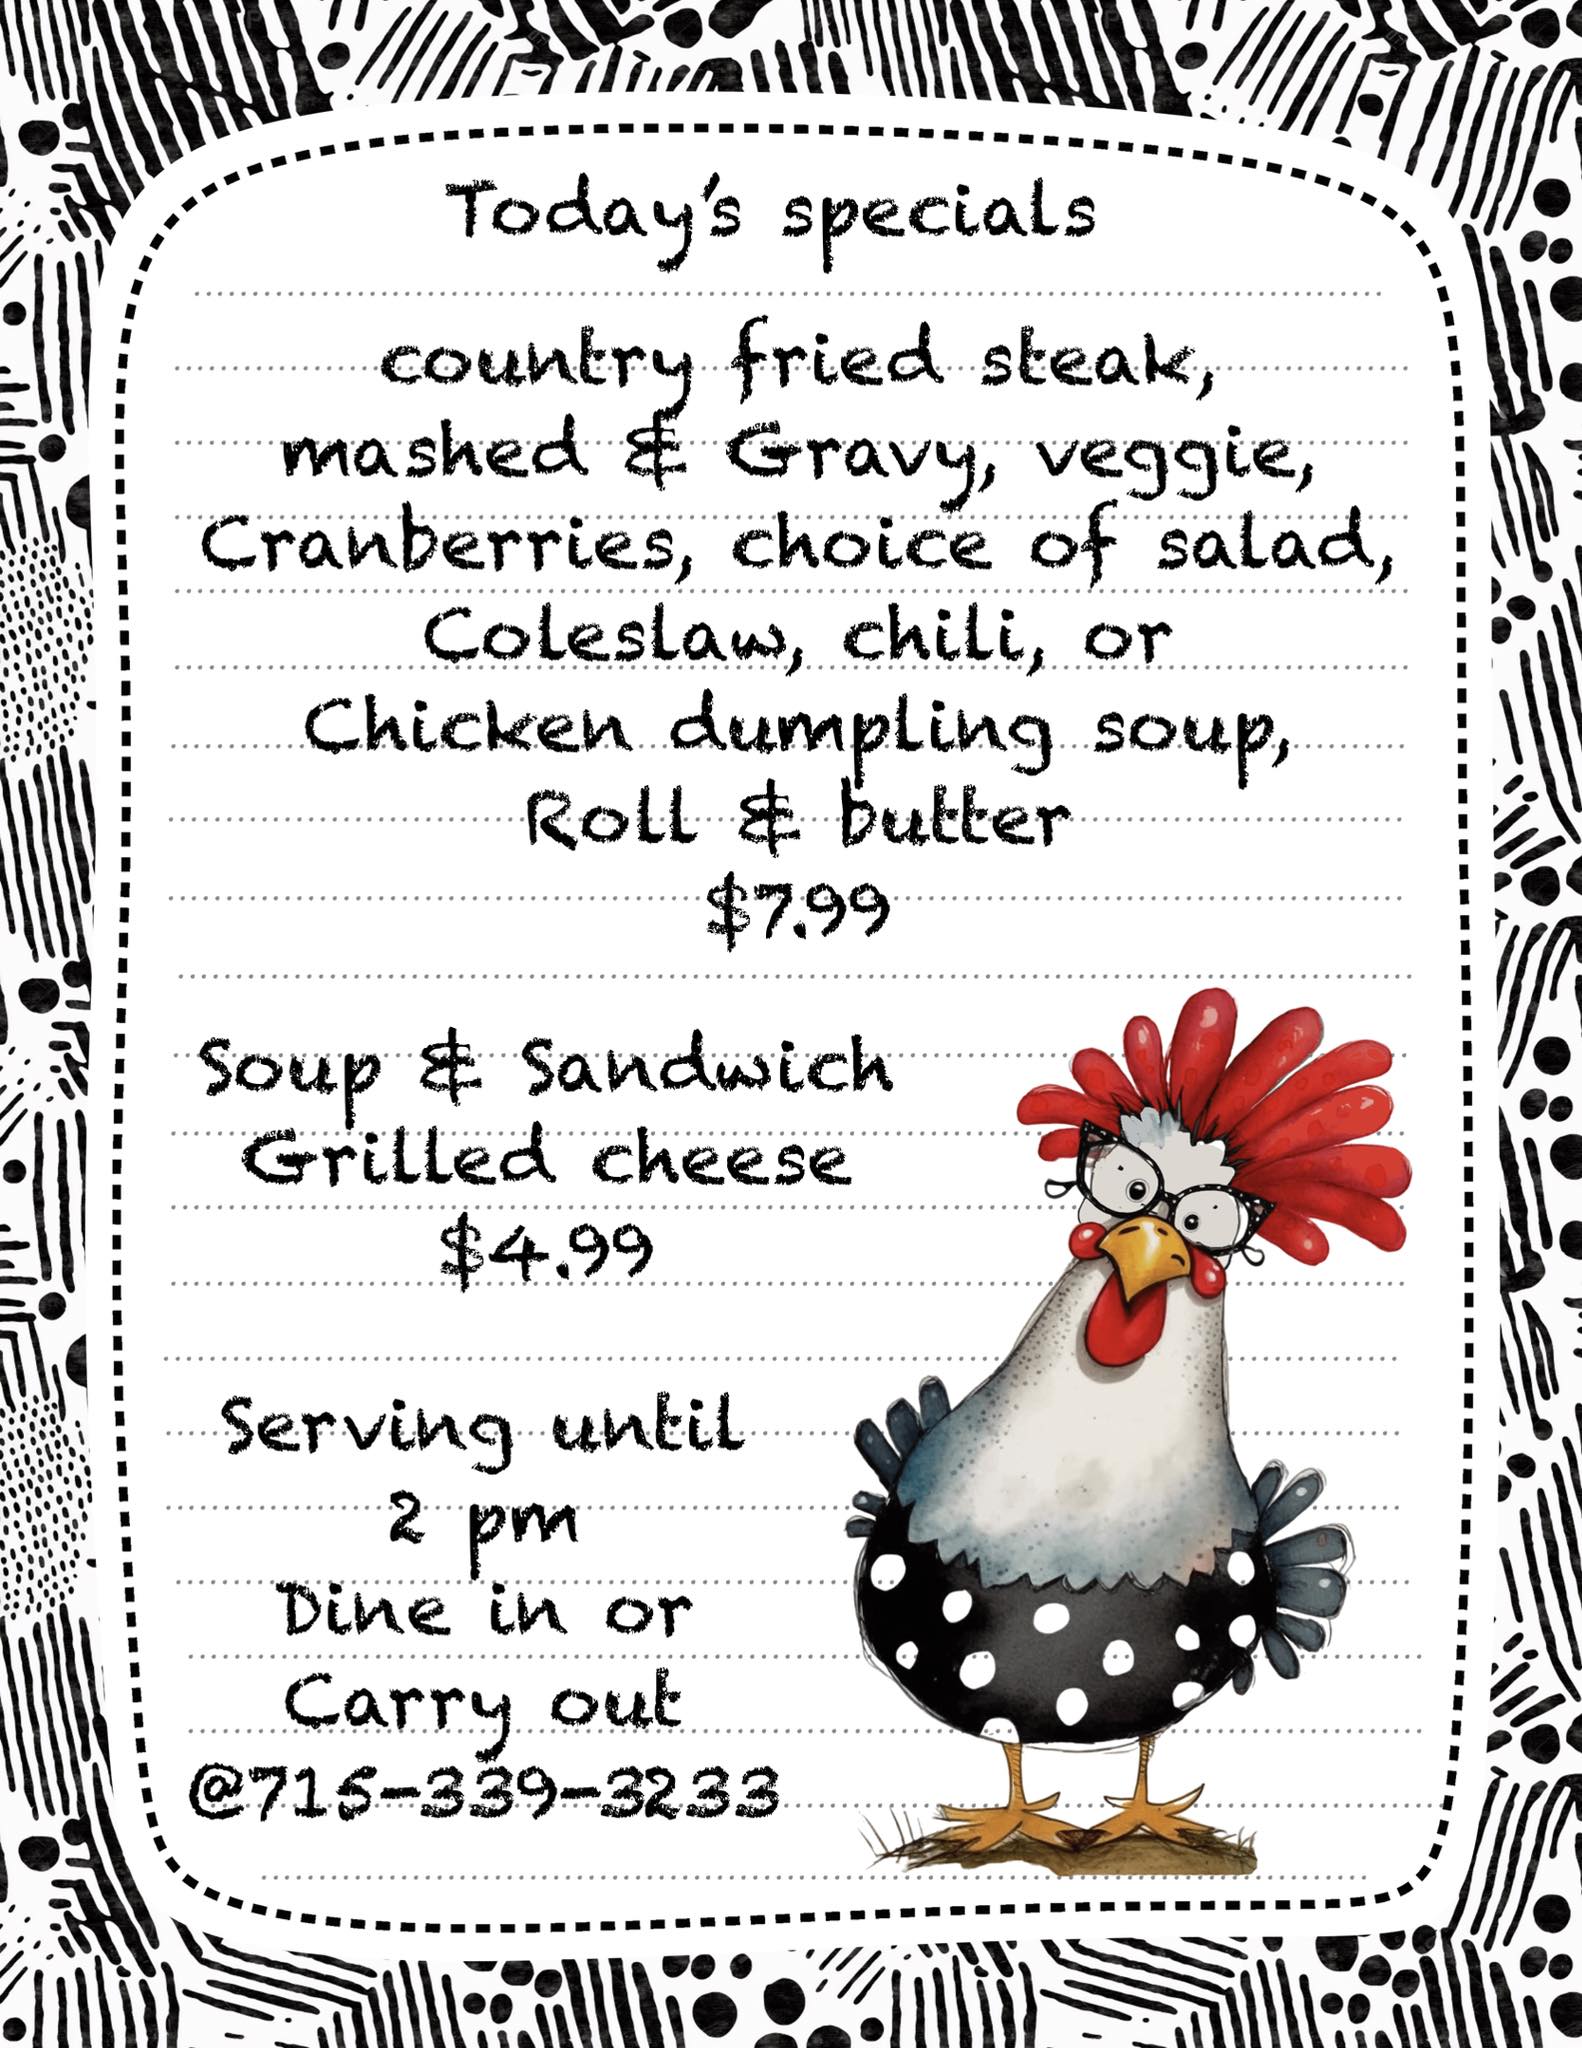 Today's specials
country fried steak,
mashed & Gravy, veggie,
Cranberries, choice of salad,
Coleslaw, chili, or
Chicken dumpling soup,
Roll & butter
$7.99
Soup & Sandwich
Grilled cheese
$4.99
Serving until
2 pm
Dine in or
Carry out
@715-339-3233